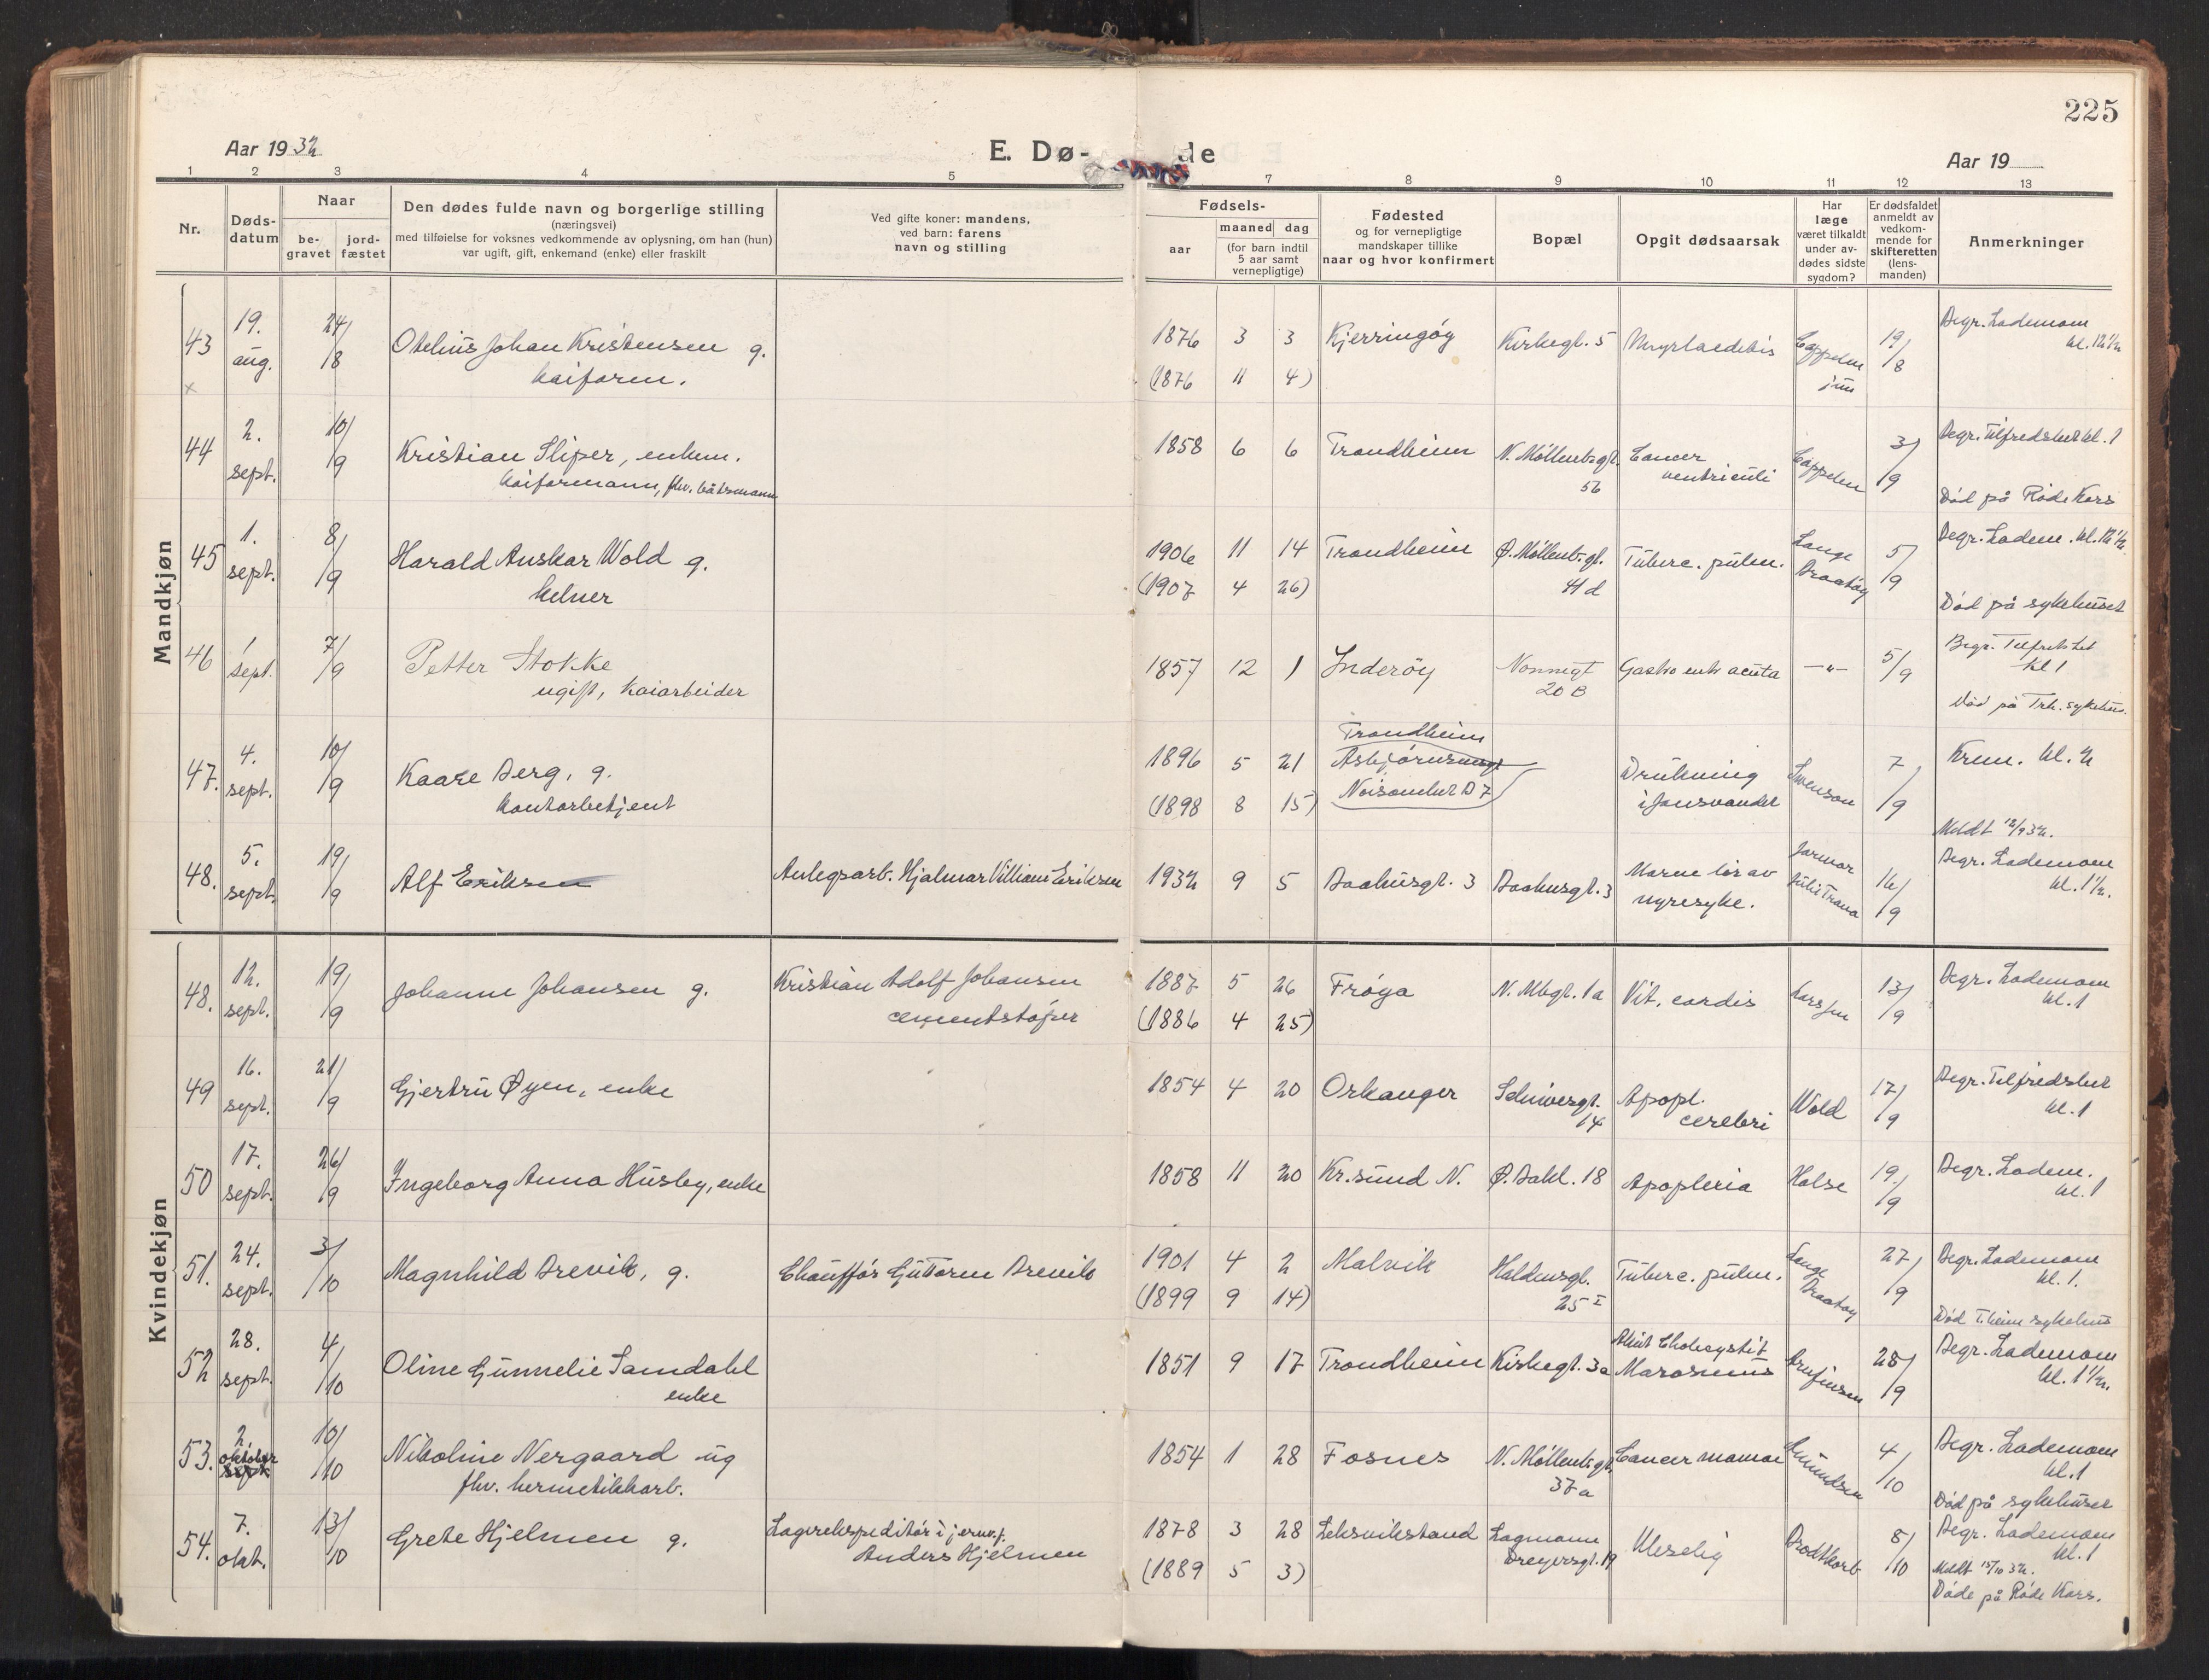 225
Aar 1932
E. Dø-
de
Aar 19
1 2 3 4 5 7 8 9 10 11 12 13
Nr.
Døds-
datum
Naar
be-
gravet
jord-
fæstet
Den dødes fulde navn og borgerlige stilling
(næringsvei)
med tilføielse for voksnes vedkommende av oplysning, om han (hun)
var ugift, gift, enkemand (enke) eller fraskilt
Ved gifte koner: mandens,
ved barn: farens
navn og stilling
Fødsels-
aar
maaned dag
(for barn indtil
5 aar samt
vernepligtige)
Fødested
og for vernepligtige
mandskaper tillike
naar og hvor konfirmert
Bopæl
Opgit dødsaarsak
Har
læge
været tilkaldt
under av-
dødes sidste
sygdom?
Er dødsfaldet
anmeldt av
vedkom-
mende for
skifteretten
(lens-
manden)
Anmerkninger
Mandkjøn
43 19. aug. 24/8 Otelius Johan Kristensen g.
kaiform.
1876 3 3 Kjerringøy Kirkegt. 5 Cappelen jun 19/8 Begr. Lademoen
kl. 12½
(1876 11 4)
x
44 2. sept. 10/9 Kristian Sliper, enkem.
kaiformann, fhv. båtsmann
1858 6 6 Trondheim N. Møllenb.gt. 56 Cancer
ventriculi Cappelen 3/9 Begr. Tilfredshet kl. 1
Død på Røde Kors
45 1. sept. 8/9 Harald Anskar Wold g.
kelner
1906 11 14 Trondheim Ø. Møllenb.gt. 41 d Tuberc. pulm. Lange
Braatøy 5/9 Begr. Ladem. kl. 12½
(1907 4 26)
Død på sykehuset
46 1 sept. 7/9 Petter Stokke
ugift, kaiarbeider
1857 12 1 Inderøy Nonnegt 20 B Gastro entr acuta —"— 5/9 Begr. Tilfredshet
kl 1
Død på Trh. sykehus.
47. 4. sept. 10/9 Kaare Berg, g.
kontorbetjent
1896 5 21 Trondheim
Asbjørnsensgt
Drukning
i Jonsvandet Swenson 7/9 Krem. kl. 2
(1898 8 15)
Meldt 12/9 32.
48. 5. sept. 19/9 Alf Eriksen
Anlegsarb. Hjalmar Villiam Eriksen
1932 9 5 Baahusgt. 3 Baahusgt. 3 Moren lir av
nyresyke. Jormor
Julie Trana 16/9 Begr. Lademoen
kl. 1½.
Kvindekjøn
48. 12. sept. 19/9 Johanne Johansen g.
Kristian Adolf Johansen
cementstøper
1887 5 26 Frøya N. Mbgt. 1a Vit. cordis 13/9 Begr. Lademoen
kl. 1
(1886 4 25)
49 16. sept. 21/9 Gjertru Øyen, enke
1854 4 20 Orkanger Schivesgt. 14 Apopl.
cerebri Wold 17/9 Begr. Tilfredshet
kl. 1
50 17. sept. 26/9 Ingeborg Anna Husby, enke
1858 11 20 Kr.sund N. Ø. Bakl. 18 Apoplexia Halse 19./9 Begr. Ladem.
kl. 1
51. 24. sept. 3/10 Magnhild Brevik, g.
Chauffør Guttorm Brevik
1901 4 2 Malvik 25 I Tuberc. pulm. Lange
Braatøy 27/9 Begr. Lademoen
kl. 1.
(1899 9 14)
Død T.heim sykehus
52 28. sept. 4/10 Oline Gunnelie Samdahl
enke
1851 9 17 Trondheim Kirkegt. 3a Akut Cholecystit
Marasmus Arnfinsen 28/9 Begr. Lademoen
kl. 1½.
53. 2. oktober sept 10/10 Nikoline Nergaard ug
fhv. hermetikkarb.
1854 1 28 Fosnes N. Møllenb.gt. 37a Cancer mamae 4/10 Begr. Lademoen
kl. 1
Død på sykehuset
54. 7. okt. 13/10 Grete Hjelmen g.
Lagerekspeditør i jernv.f.
Anders Hjelmen
1878 3 28 Leksvikstrand Lagmann
Dreyersgt. 19 Uleselig Brodtkorb 8/10 Begr. Lademoen
kl. 1
(1889 5 3)
Meldt 15/10 32.
Døde på Røde Kors.